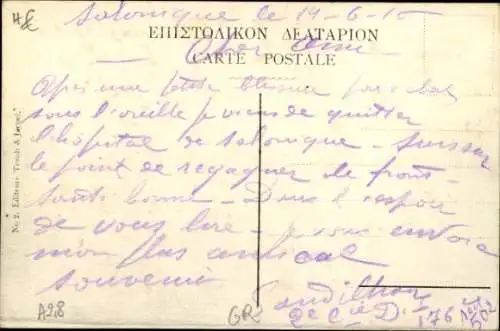 Salonique le 19-6-16
ΕΠΙΣΤΟΛΙΚΟΝ ΔΕΛΤΑΡΙΟΝ
Cher Ami
CARTE POSTALE
Après une petite blessure par bal
sous l'oreille je viens de quitter
l'hôpital de Salonique - Suis sur
le point de regagner le front -
Santé bonne - Dans l'espoir
de vous lire - je vous envoie
mon plus amical
souvenir
2e Cie D. 176
No 2. Editeurs
A28
GR